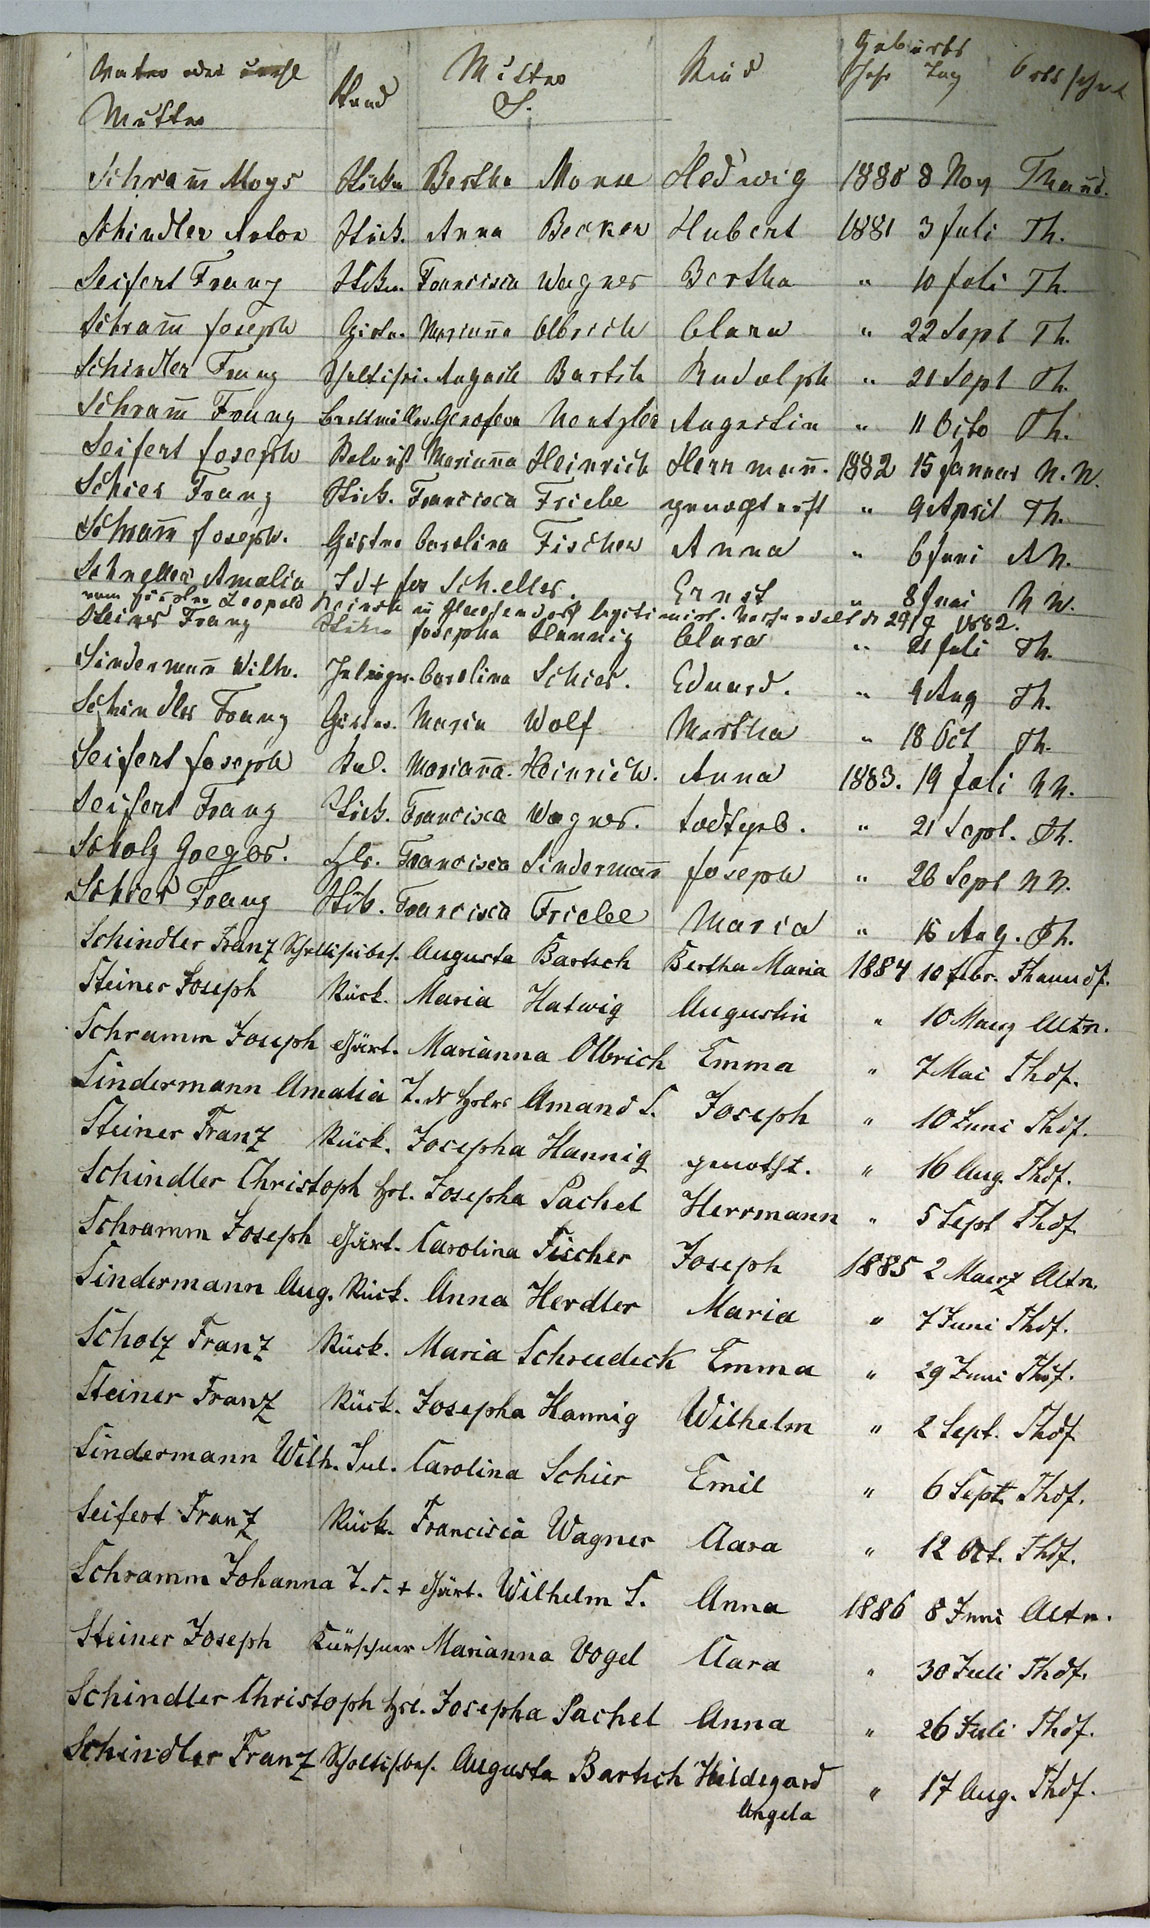 Vater oder unehl Stand Mutter Kind Geburts Ortschaft
Mutter S. Jahr Tag
Schram̅ Aloys Stückm Bertha Hedwig 1880 8 Nov Than̅d.
Schindler Anton Stück. Anna Becker Hubert 1881 3 Juli Th.
Seifert Franz Stückm. Francisca Wagner Bertha " 10 Juli Th.
Schram̅ Joseph Gärtn. Marian̅a Olbrich Clara " 22 Sept Th.
Schindler Franz Scholtisei. August Bartsch Rudolph " 21 Sept Th.
Schram̅ Franz Brettmüller. Genofeva Augustin " 11 Octo Th.
Seifert Joseph Marian̅a Heinrich Herrman̅. 1882 15 Januar N. N.
Schier Franz Stück. Francisca Friebe genothtauft " 9 April Th.
Schram̅ Joseph. Gärtner Carolina Fischer Anna " 6 Juni A N.
Schneller Amalia T d + Ernst " 8 Juni N N.
vom Leopold legitimirt. 1882.
Steiner Franz Josepha Hannig Clara " 21 Juli Th.
Sinderman̅ Wilh. Carolina Schier. Eduard. " 9 Aug Th.
Schindler Franz Gärtn. Maria Wolf Martha " 18 Oct Th.
Seifert Joseph Marian̅a. Heinrich. Anna 1883. 19 Juli N N.
Seifert Franz Stück. Francisca Wagner. todtgeb. " 21 Sept. Th.
Scholz Gregor. Hsl. Francisca Sinderman̅ Joseph " 26 Sept N N.
Schier Franz Stück. Francisca Friebe Maria " 15 Aug. Th.
Schindler Franz Scholtiseibes. Augusta Bartsch Bertha Maria 1884 10 Febr. Thanndf.
Steiner Joseph Rück. Maria Hatwig Augustin " 10 Maerz Altn.
Schramm Joseph Gärt. Marianna Olbrich Emma " 7 Mai Thdf.
Sindermann Amalia T. d. Hslrs Amand S. Joseph " 10 Juni Thdf.
Steiner Franz Rück. Josepha Hannig genotht. " 16 Aug. Thdf.
Schindler Christoph Hsl. Josepha Pachel Herrmann " 5 Sept Thdf.
Schramm Joseph Gärt. Carolina Fischer Joseph 1885 2 Maerz Altn.
Sindermann Aug. Rück. Anna Herdler Maria " 7 Juni Thdf.
Scholz Franz Rück. Maria Schreudeck Emma " 29 Juni Thdf.
Steiner Franz Rück. Josepha Hannig Wilhelm " 2 Sept. Thdf.
Sindermann Wilh. Inl. Carolina Schier Emil " 6 Sept. Thdf.
Seifert Franz Rück. Francisca Wagner Clara " 12 Oct. Thdf.
Schramm Johanna T. d. + Gärt. Wilhelm S. Anna 1886 8 Juni Altn.
Steiner Joseph Kürschner Marianna Vogel Clara " 30 Juli Thdf.
Schindler Christoph Hsl. Josepha Pachel Anna " 26 Juli Thdf.
Schindler Franz Scholtisbes. Augusta Bartsch Hildegard " 17 Aug. Thdf.
Angela